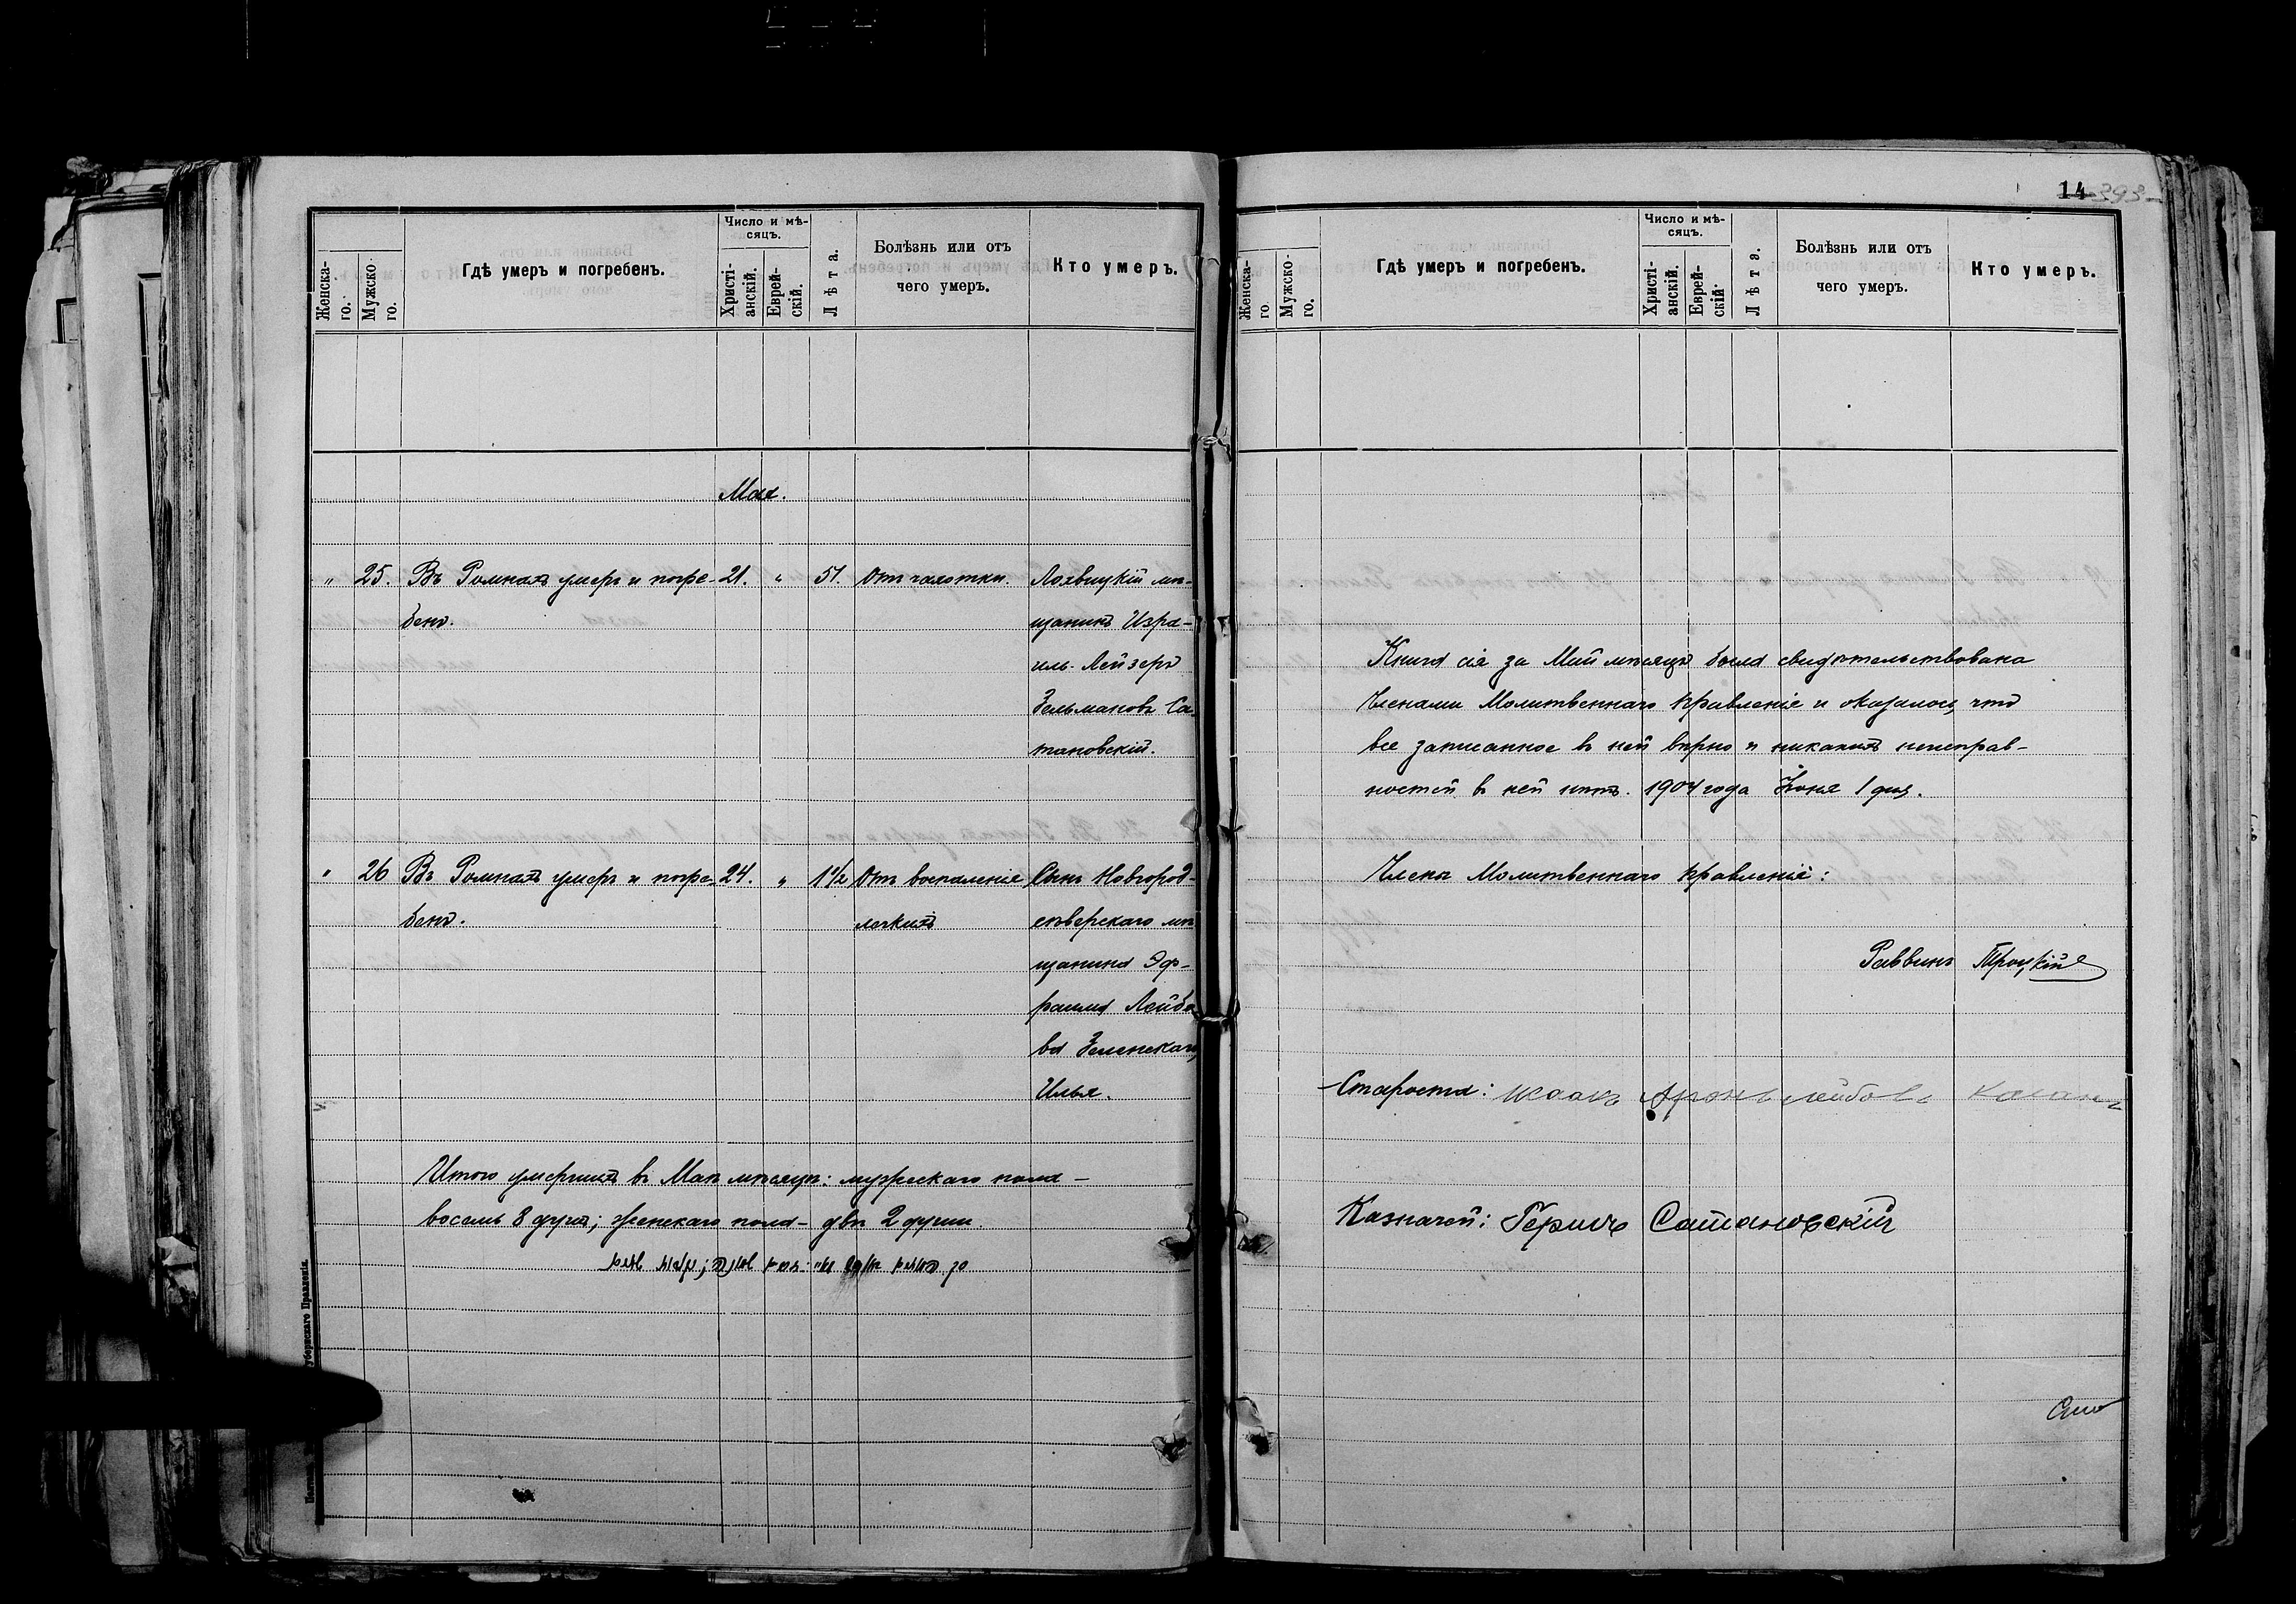 Женска-
го.
Мужско-
го.
Гдѣ умеръ и погребенъ.
Число и мѣ-
сяцъ.
Христі-
анскій.
Еврей-
скій.
Лѣта.
Болѣзнь или отъ
чего умеръ.
Кто умеръ.
Мая.
" 25. Въ Ромнахъ умеръ и погре- 21. " 51. Отъ чахотки. Лохвицкій мѣ-
бенъ. щанинъ Изра-
иль-Лейзеръ
Зельмановъ Са-
тановскій.
" 26 Въ Ромнахъ умеръ и погре- 24. " 1 1/2 Отъ воспаленіе Сынъ Новгород-
бенъ. легкихъ сѣверскаго мѣ
щанина Эф-
раима Лейбо
ва Зеленскаго,
Илья.
Итого умершихъ въ Маѣ мѣсяцѣ: мужескаго пола –
восемь 8 душъ; женскаго пола – двѣ 2 души.
14
393
Женска-
го
Мужско-
го.
Гдѣ умеръ и погребенъ.
Число и мѣ-
сяцъ.
Христі-
анскій.
Еврей-
скій.
Лѣта.
Болѣзнь или отъ
чего умеръ.
Кто умеръ.
Книга сія за Май мѣсяцъ была свидѣтельствована
Членами Молитвеннаго Правленіе и оказалось, что
все записанное въ ней вѣрно и никакихъ неисправ-
ностей въ ней нѣтъ. 1904 года Іюня 1 дня.
Члены Молитвеннаго Правленія:
Раввинъ Троцкій
Староста: Исаакъ Аронъ Лейбовъ Каганъ
Казначей: Гершъ Сатановскій